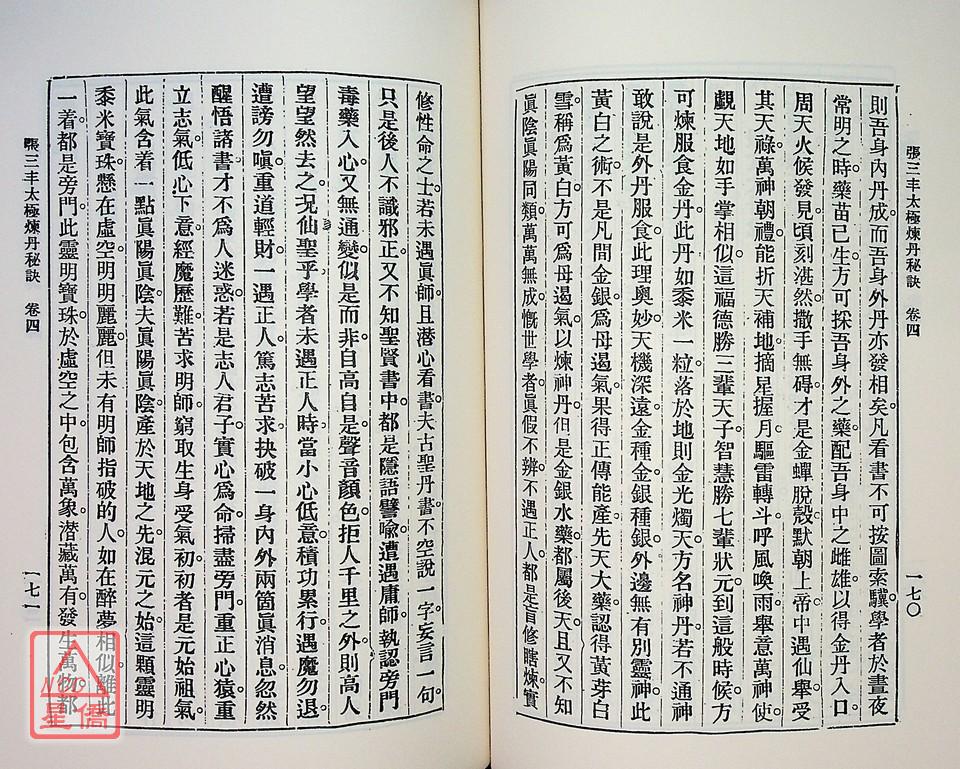 張三丰太極煉丹秘訣 卷四
一七〇
則吾身內丹成。而吾身外丹亦發相矣。凡看書不可按圖索驥。學者於晝夜
常明之時。藥苗已生。方可採吾身外之藥。配吾身中之雌雄。以得金丹入口。
周天火候發見。頃刻湛然。撒手無碍。才是金蟬脫殼。默朝上帝。中遇仙舉。受
其天祿。萬神朝禮。能折天補地。摘星握月。驅雷轉斗。呼風喚雨。舉意萬神使。
覷天地如手掌相似。這福德勝三輩天子。智慧勝七輩狀元。到這般時候。方
可煉服食金丹。此丹如黍米一粒。落於地則金光燭天。方名神丹。若不通神
敢說是外丹服食。此理奧妙。天機深遠。金種金。銀種銀。外邊無有別靈神。此
黃白之術。不是凡間金銀爲母遏氣。果得正傳。能產先天大藥。認得黃芽白
雪。稱爲黃白。方可爲母遏氣以煉神丹。但是金銀水藥。都屬後天。且又不知
眞陰眞陽同類。萬萬無成。慨世學者眞假不辨。不遇正人。都是盲修瞎煉。實
修性命之士。若未遇眞師。且潛心看書。夫古聖丹書。不空說一字。妄言一句。
只是後人不識邪正。又不知聖賢書中都是隱語譬喩。遭遇庸師。執認旁門
毒藥入心。又無通變。似是而非。自高自是。聲音顏色。拒人千里之外。則高人
望望然去之。況仙聖乎。學者未遇正人時。當小心低意。積功累行。遇魔勿退。
遭謗勿嗔。重道輕財。一遇正人。篤志苦求。抉破一身內外兩箇眞消息。忽然
醒悟諸書。才不爲人迷惑。若是志人君子。實心爲命。掃盡旁門。重正心猿。重
立志氣。低心下意。經魔歷難。苦求明師。窮取生身受氣初。初者是元始祖氣。
此氣含着一點眞陽眞陰。夫眞陽眞陰。產於天地之先。混元之始。這顆靈明
黍米寶珠。懸在虛空。明明麗麗。但未有明師指破的人。如在醉夢相似。離此
一着。都是旁門。此靈明寶珠。於虛空之中包含萬象。潛藏萬有。發生萬物。都
張三丰太極煉丹秘訣 卷四
一七一
星僑